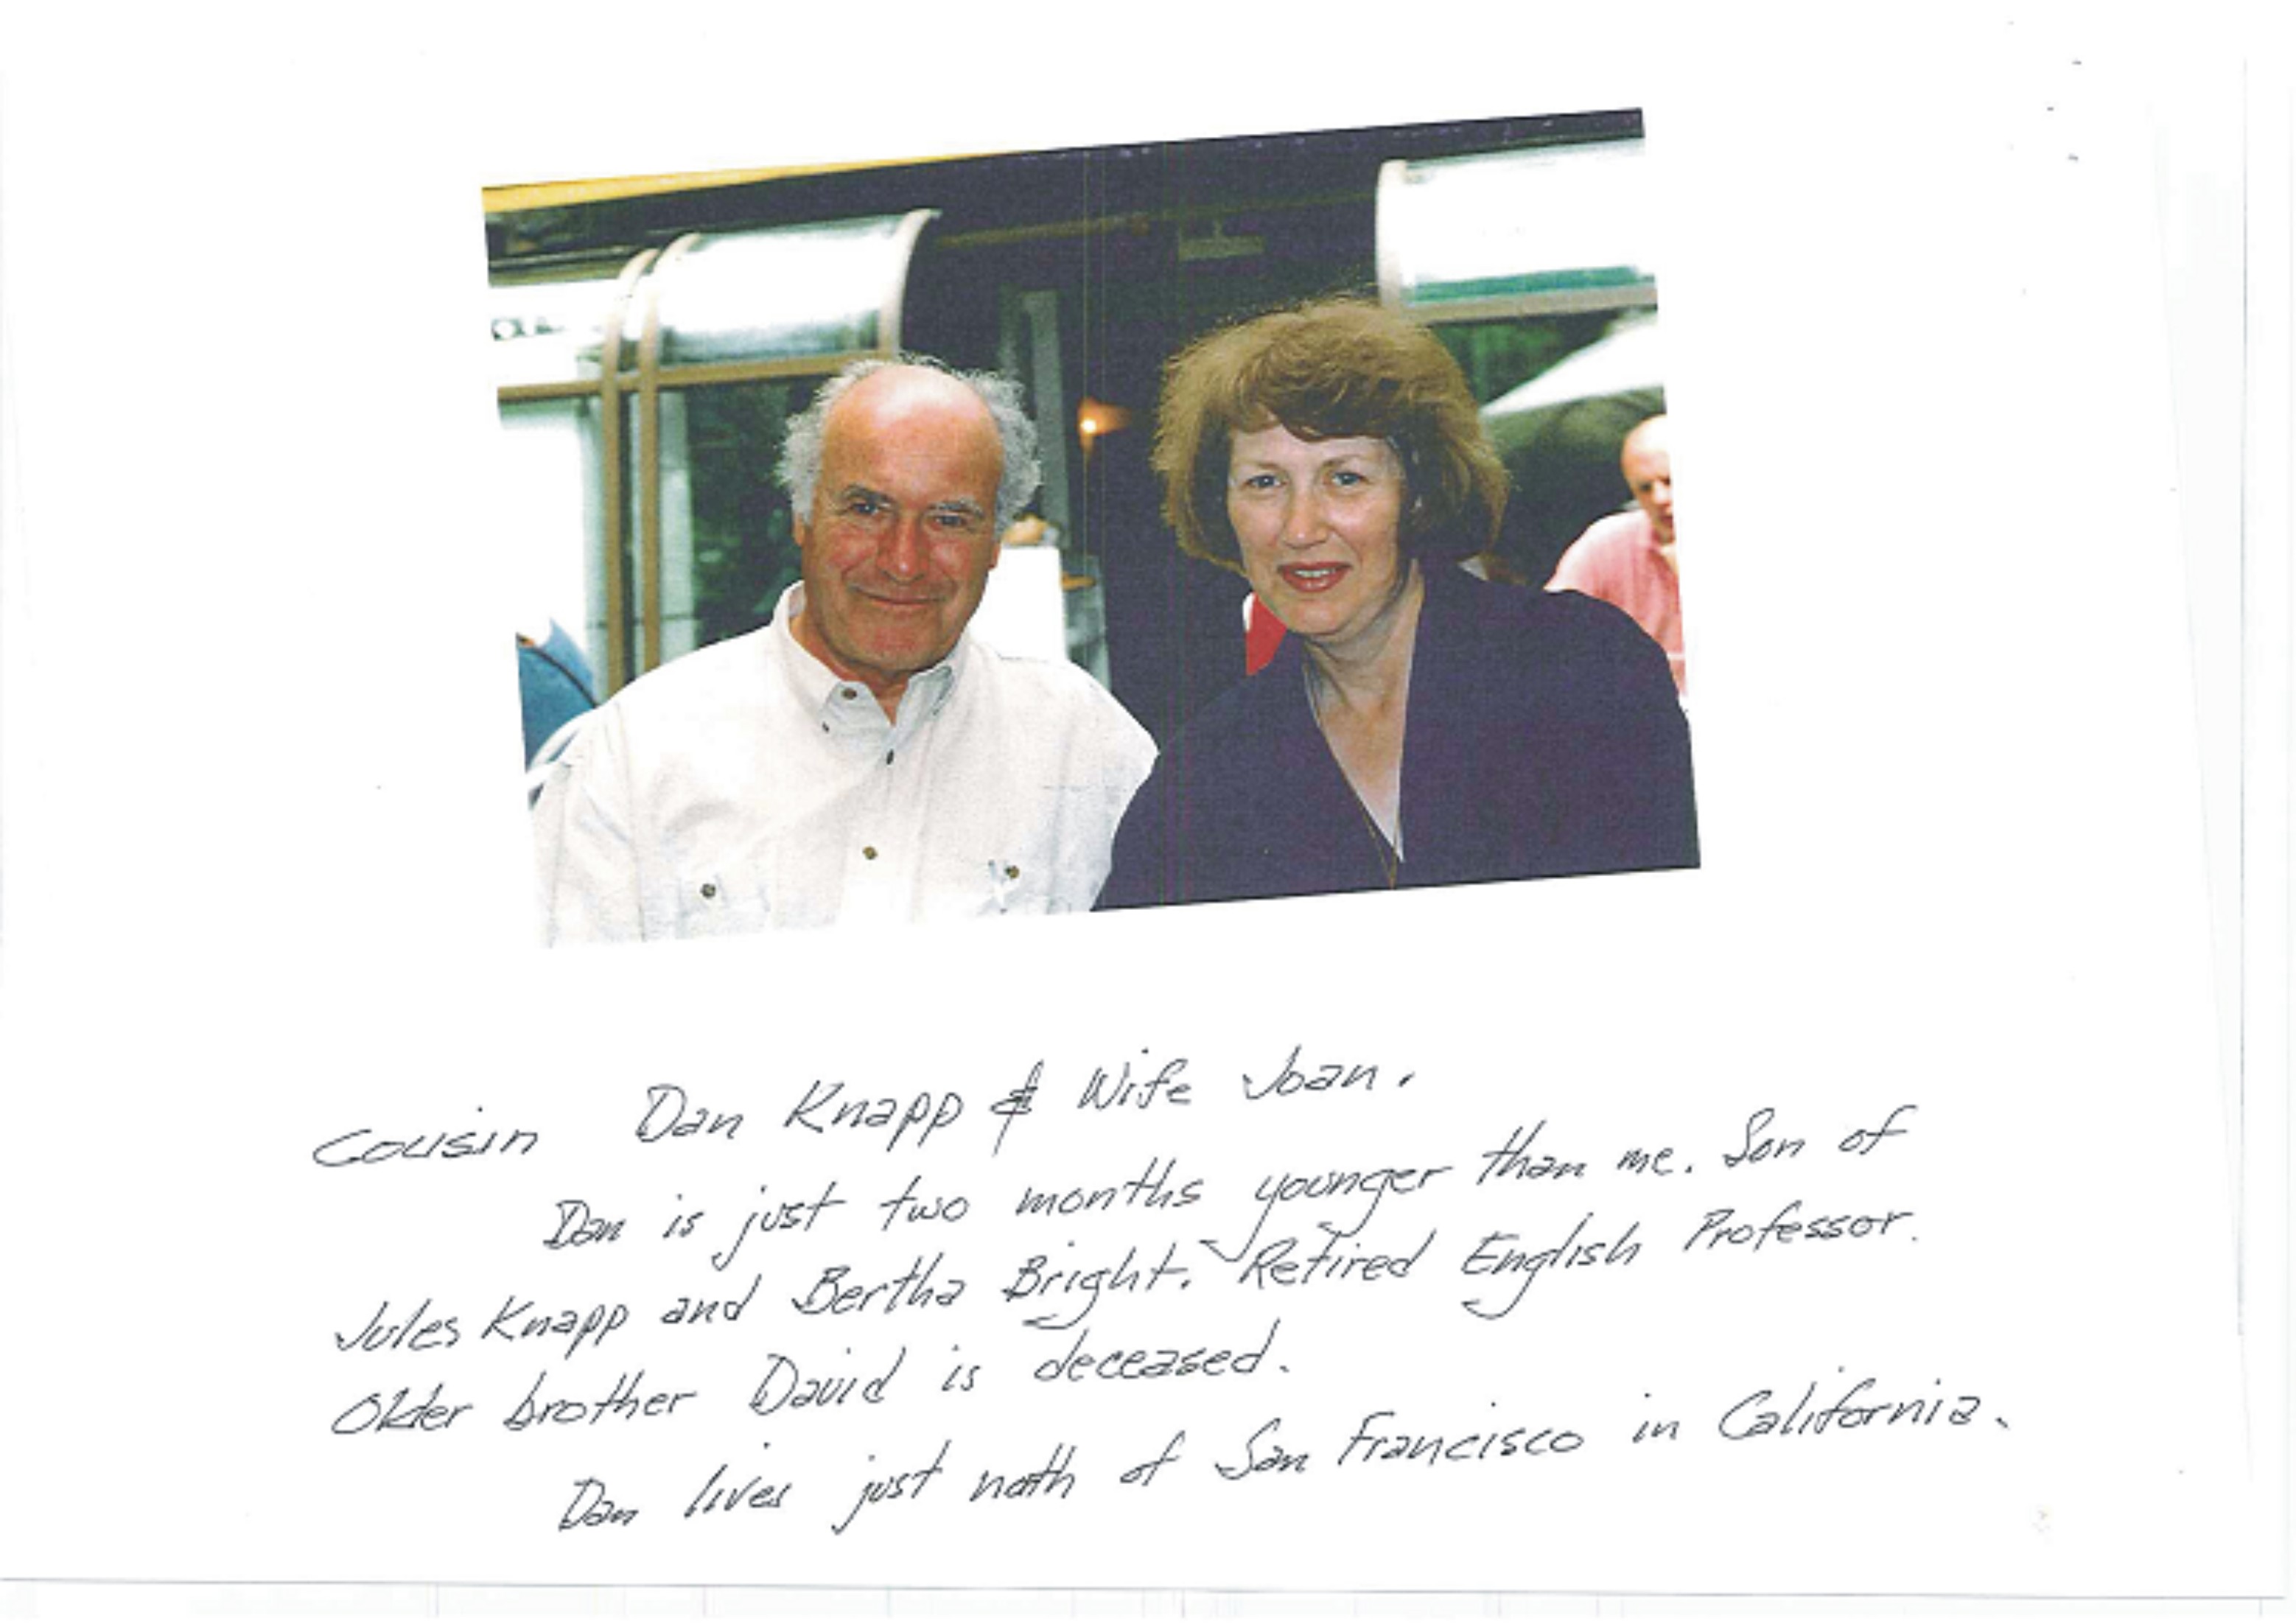 Cousin Dan Knapp & Wife Joan.
Dan is just two months younger than me. Son of
Jules Knapp and Bertha Bright. Retired English Professor.
Older brother David is deceased.
Dan lives just north of San Francisco in California.